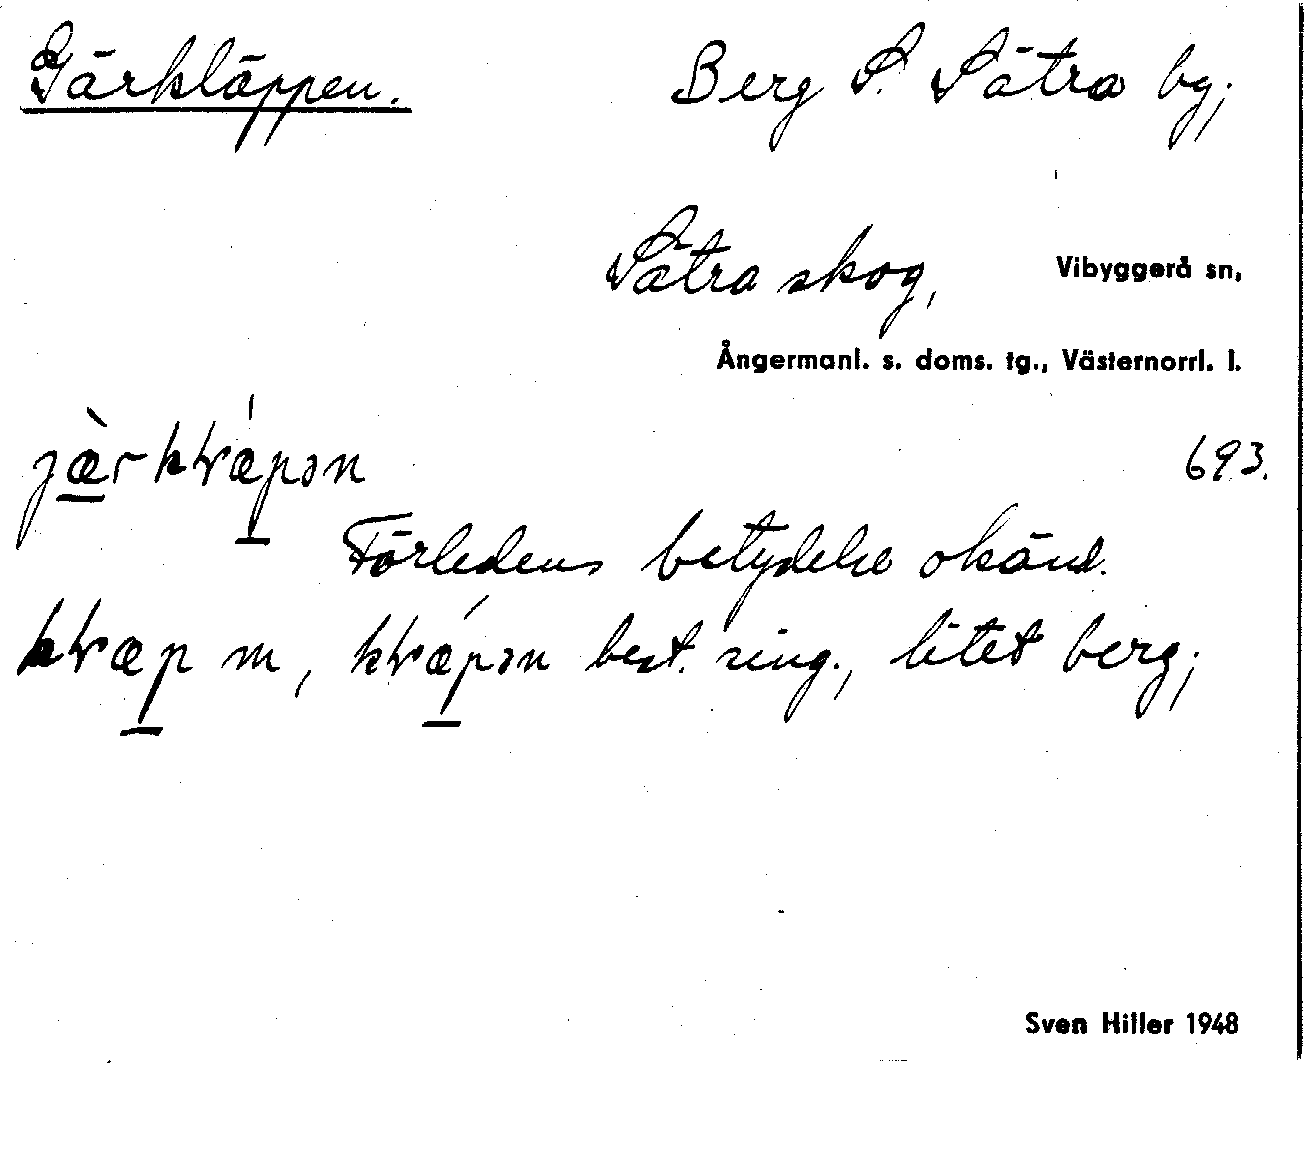 Gärkläppen. Berg S. Sätra by;
Sätra skog, Vibyggerå sn,
Ångermanl. s. doms. tg., Västernorrl. l.
693.
Förledens betydelse okänd.
m, best. sing., litet berg;
Sven Hiller 1948